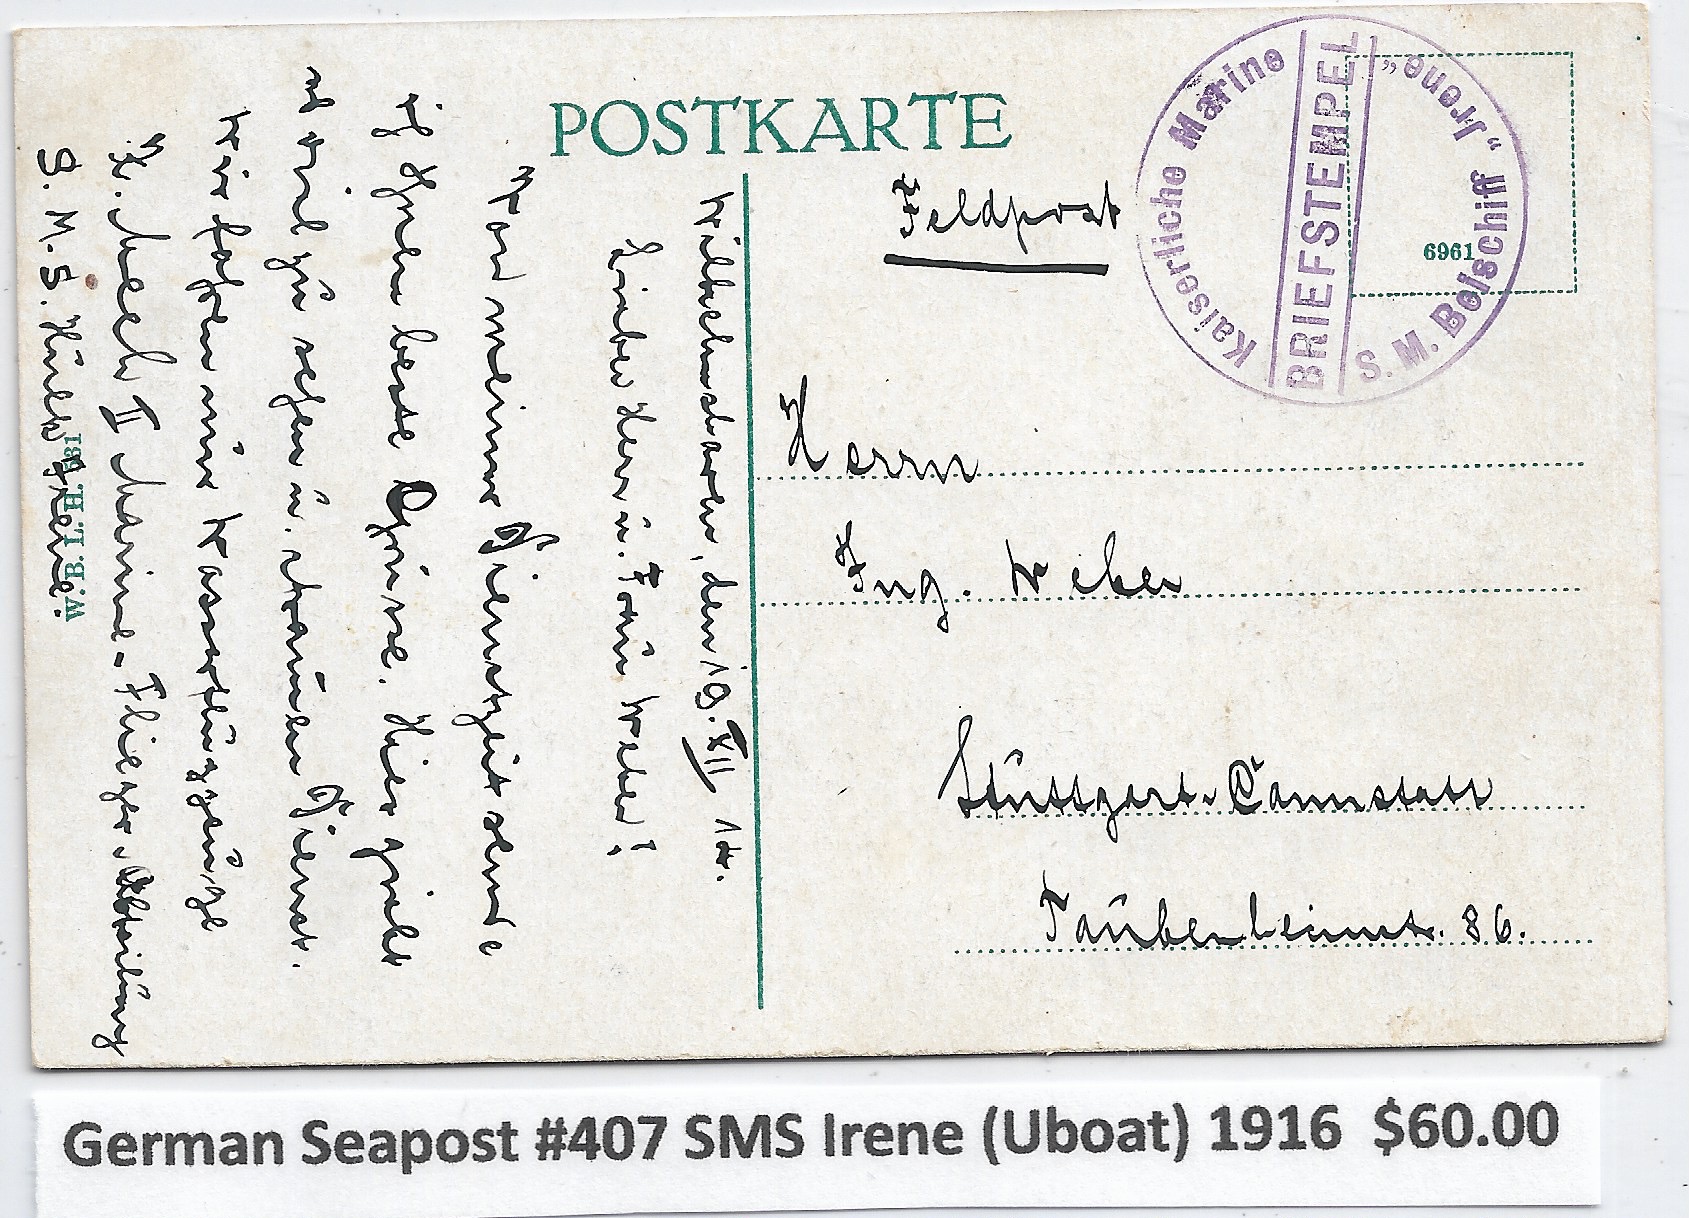 POSTKARTE
Kaiserliche Marine
BRIEFSTEMPEL
S. M. Beischiff „Irene“
6961
Feldpost
Herrn
Ing. Weber
Stuttgart-Cannstatt
Taubenheimstr. 86.
Wilhelmshaven, den 19. XII 1
Lieber Herr u. Frau Weber!
Von meiner Dienstzeit sende
ich Ihnen beste Grüsse. Hier giebt
es viel zu sehen u. strammen Dienst.
Wir haben nur Wasserflugzeuge
II Marine-Flieger-Abteilung
S. M. S. Hulk Irene.
W. B. L. H. 531
German Seapost #407 SMS Irene (Uboat) 1916 $60.00